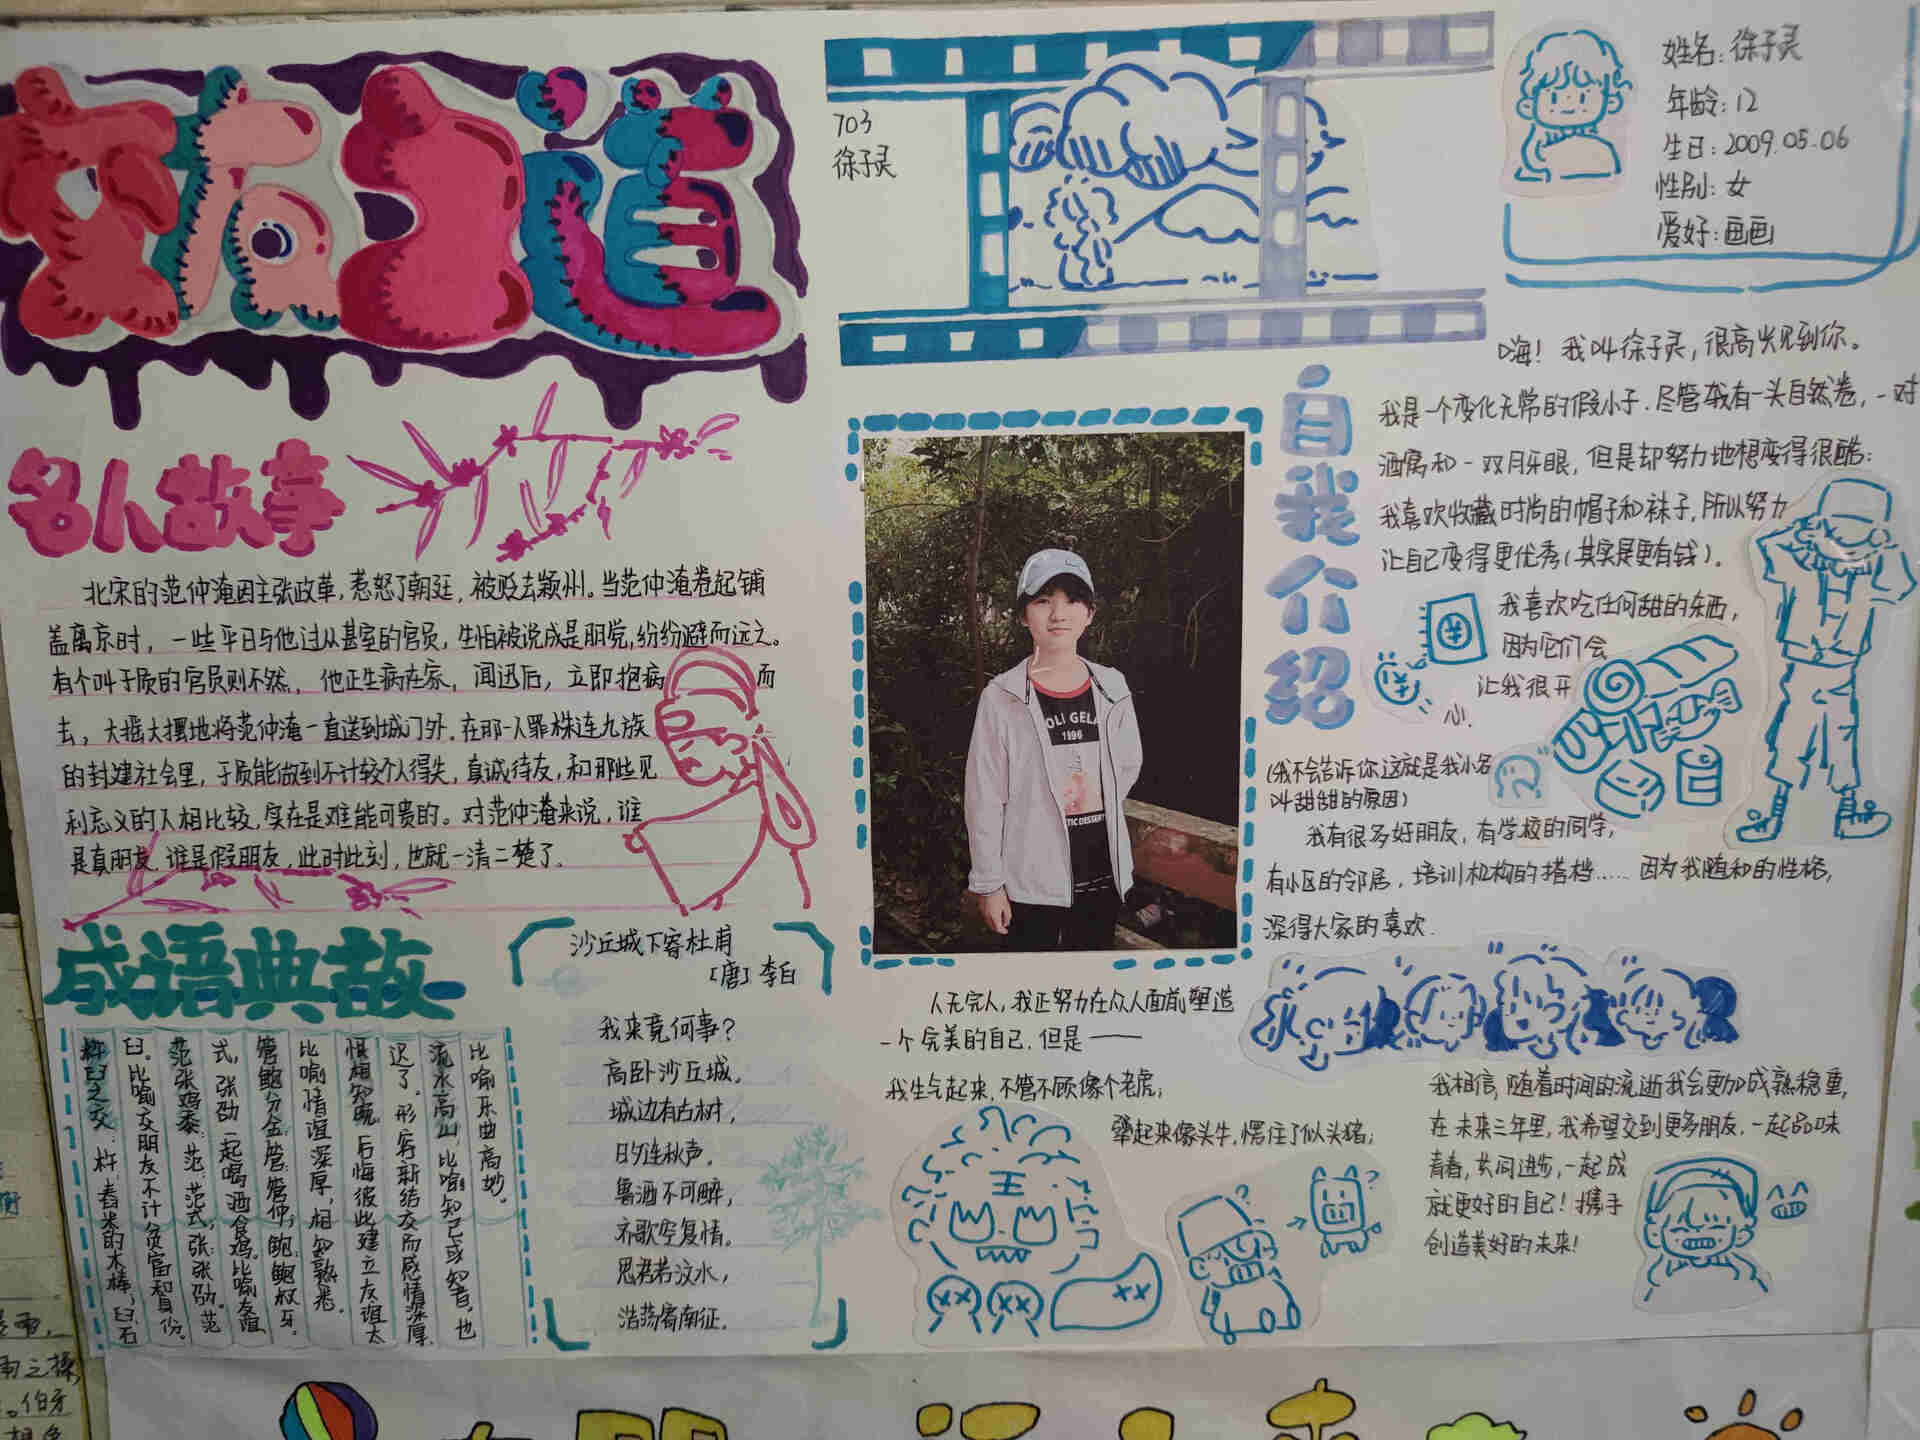 交友之道
名人故事
北宋的范仲淹因主张改革，惹怒了朝廷，被贬去颖州。当范仲淹卷起铺
盖离京时，一些平日与他过从甚密的官员，生怕被说成是朋党，纷纷避而远之。
有个叫于质的官员则不然，他正生病在家，闻迅后，立即抱病而
去，大摇大摆地将范仲淹一直送到城门外。在那一人罪株连九族
的封建社会里，于质能做到不计较个人得失，真诚待友，和那些见
利忘义的人相比较，实在是难能可贵的。对范仲淹来说，谁
是真朋友，谁是假朋友，此时此刻，也就一清二楚了。
成语典故
杵臼之交：杵：舂米的木棒；臼：石
臼。比喻交朋友不计贫富和身份。
范张鸡黍：范：范式，张：张劭。范
式，张劭一起喝酒食鸡。比喻友谊
管鲍分金：管：管仲；鲍：鲍叔牙。
比喻情谊深厚，相知熟悉。
恨相知晚：后悔彼此建立友谊太
迟了。形容新结交而感情深厚
流水高山：比喻知己或知音，也
比喻乐曲高妙。
沙丘城下寄杜甫
[唐] 李白
我来竟何事？
高卧沙丘城，
城边有古树，
日夕连秋声。
鲁酒不可醉，
齐歌空复情。
思君若汶水，
浩荡寄南征。
703
徐子灵
姓名：徐子灵
年龄：12
生日：2009.05.06
性别：女
爱好：画画
自我介绍
嗨！我叫徐子灵，很高兴见到你。
我是一个变化无常的假小子，尽管我有一头自然卷，一对
酒窝和一双月牙眼，但是却努力地想变得很酷；
我喜欢收藏时尚的帽子和袜子，所以努力
让自己变得更优秀（其实是更有钱）。
我喜欢吃任何甜的东西，
因为它们会
让我很开
心。
（我不会告诉你这就是我小名
叫甜甜的原因）
我有很多好朋友，有学校的同学，
有小区的邻居，培训机构的搭档……因为我随和的性格，
深得大家的喜欢.
OLI GELA
1996
TIC DESSERT
人无完人，我正努力在众人面前塑造
一个完美的自己.但是——
我生气起来，不管不顾像个老虎；
王
犟起来像头牛，愣住了似头猪；
我相信，随着时间的流逝我会更加成熟稳重，
在未来三年里，我希望交到更多朋友，一起品味
青春，共同进步，一起成
就更好的自己！携手
创造美好的未来！